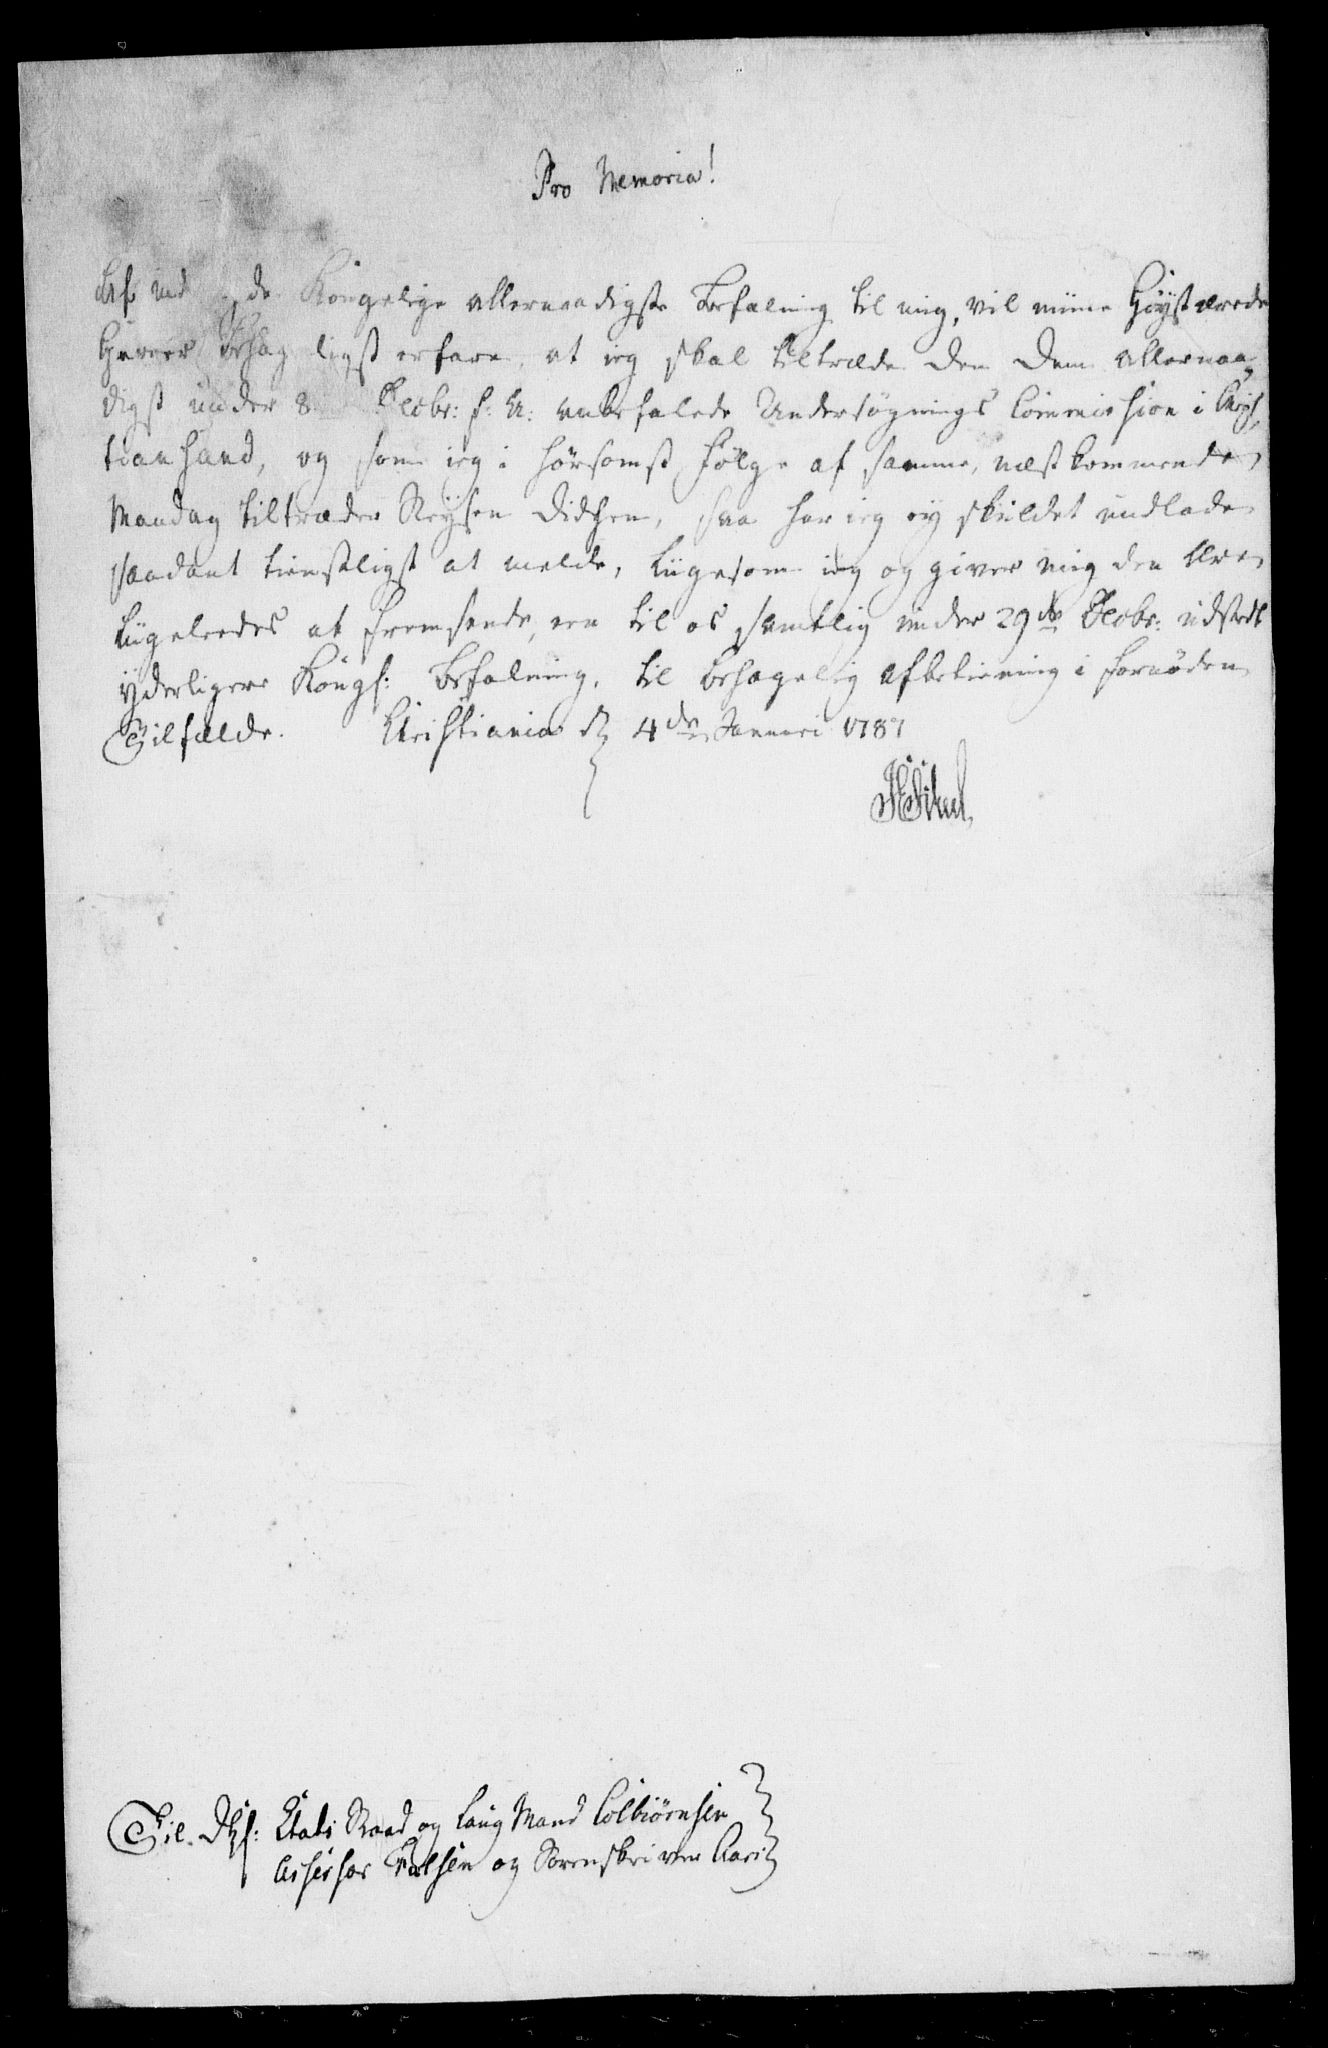 Pro Memoria!
Af Kongelige allernaadigste Befaling til mig, vil mine Høystærede
Herrer behageligst erfare, at ieg skal tiltræde den Dem allernaa-
digst under 8 Xbr: f: A: anbefalede Undersøgnings Commission i Chris-
tiansand, og som ieg i hørsomst Følge af samme, næstkommende
Mandag tiltræder Reysen Didhen, saa har ieg ey skuldet undlade
saadant tienstligst at melde, liigesom ieg og giver mig den Ære
liigeleedes at fremsende, een til os samtlig under 29de Xbr: udstædt
yderligere Kongl: Befaling, til behagelig afbetiening i fornøden
Tilfælde. Christiania d 4de Januari 1787

Til. Hrr: Etats Raad og Laug Mand Colbiørnsen
Assessor Falsen og Sorenskriver